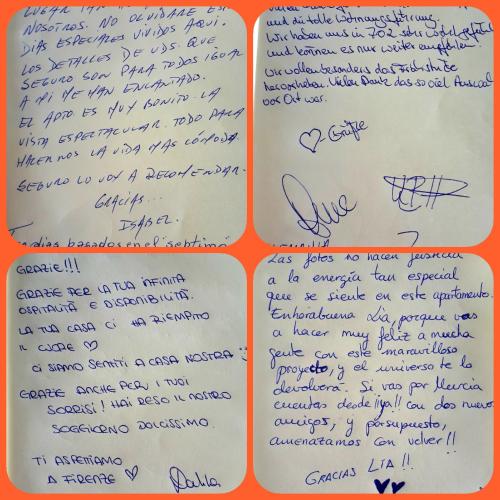 LUGAR TAN
NOSOTROS. NO OLVIDARE ES
DIAS ESPECIALES VIVIDOS AQUI.
LOS DETALLES DE UDS. QUE
SEGURO SON PARA TODOS IGUAL
A MI ME HAN ENCANTADO.
EL APTO ES MUY BONITO. LA
VISTA ESPECTACULAR. TODO PARA
HACERNOS LA VIDA MAS CÓMODA.
SEGURO LO VOY A RECOMENDAR.
GRACIAS...
ISABEL.
dias basados en el septimo
und die tolle Wohnungsführung.
Wir haben uns in 702 sehr wohl gefühlt
und können es nur weiterempfehlen
wir wollen besonders das Frühstück
hervorheben. Vielen Dank das so viel Auswahl
vor Ort war.
♡-Grüße
GRAZIE!!!
GRAZIE PER LA TUA INFINITA
OSPITALITÀ E DISPONIBILITÀ.
LA TUA CASA CI HA RIEMPITO
IL CUORE ♡
CI SIAMO SENTITI A CASA NOSTRA
GRAZIE ANCHE PER I TUOI
SORRISI! HAI RESO IL NOSTRO
SOGGIORNO DOLCISSIMO.
TI ASPETTIAMO
A FIRENZE ♡
Las fotos no hacen justicia
a la energía tan especial
que se siente en este apartamento.
Enhorabuena Lía, porque vas
a hacer muy feliz a mucha
gente con este maravilloso
proyecto, y el universo te lo
devolverá. Si vas por Murcia
cuentas desde ¡¡ya!! con dos nuevos
amigos, y por supuesto,
amenazamos con volver!!
GRACIAS LIA!!